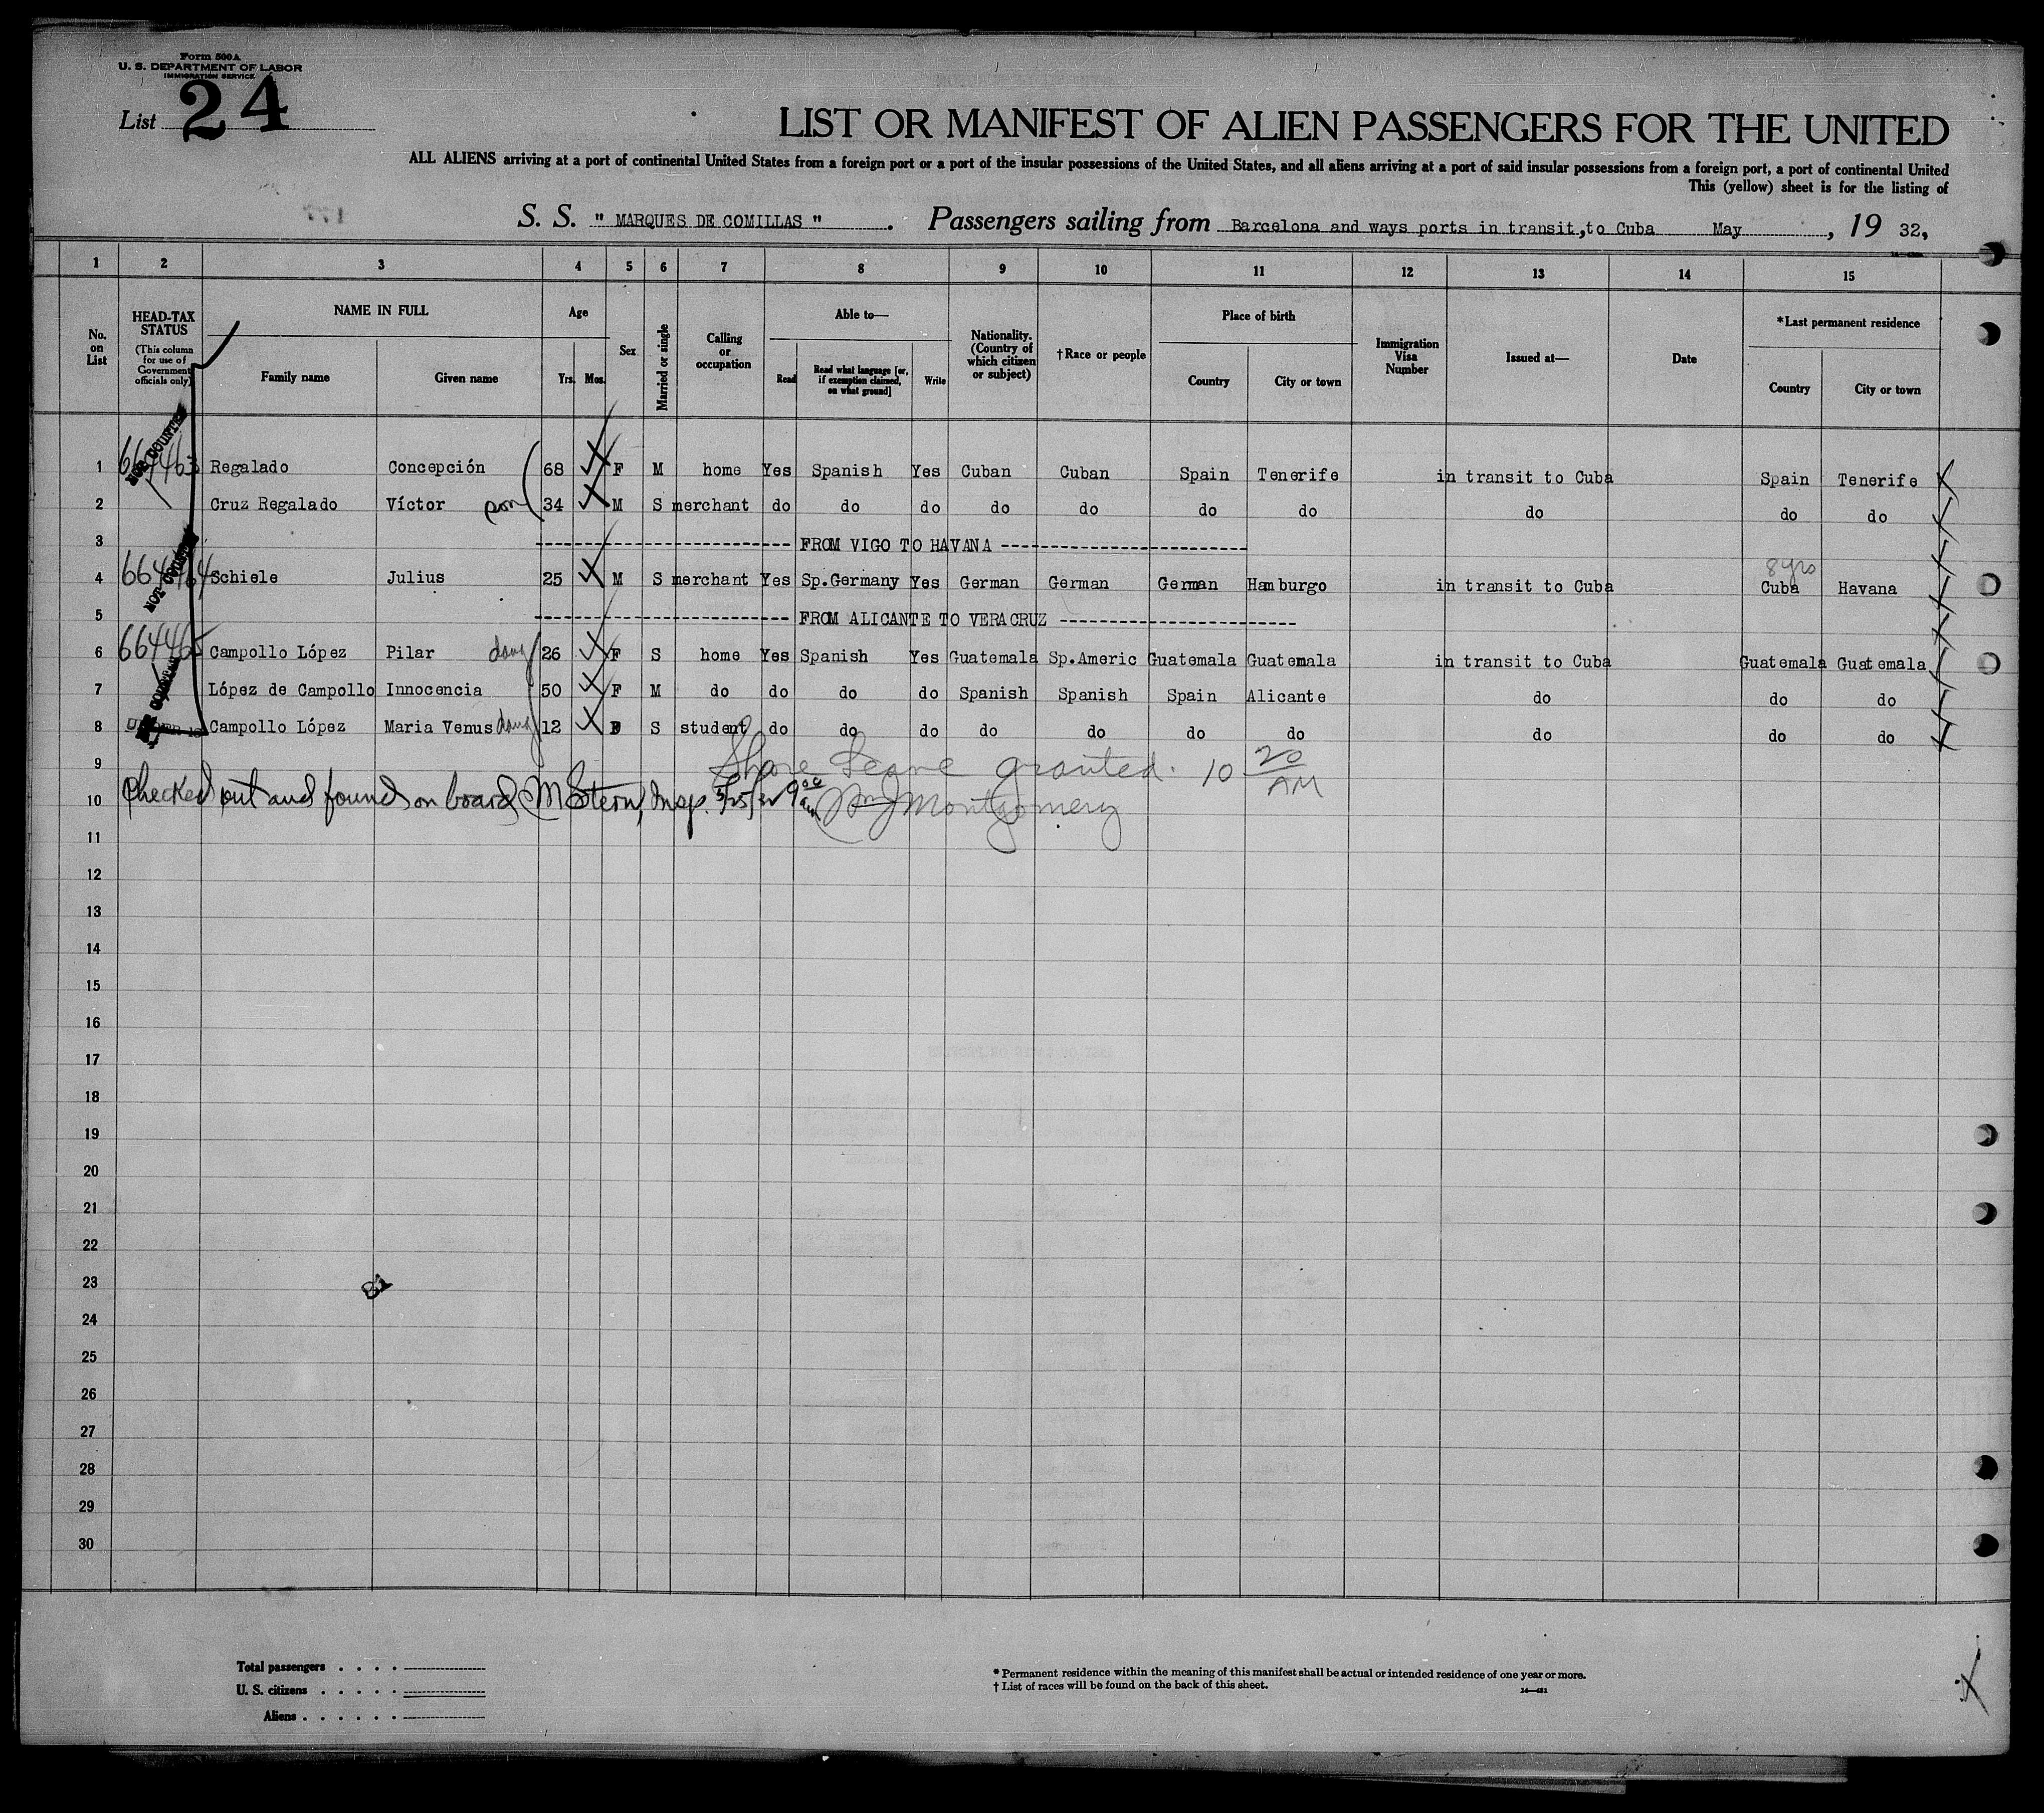 Form 500A
U. S. DEPARTMENT OF LABOR
IMMIGRATION SERVICE
List 24
LIST OR MANIFEST OF ALIEN PASSENGERS FOR THE UNITED
ALL ALIENS arriving at a port of continental United States from a foreign port or a port of the insular possessions of the United States, and all aliens arriving at a port of said insular possessions from a foreign port, a port of continental United
This (yellow) sheet is for the listing of
S. S. " MARQUES DE COMILLAS " . Passengers sailing from Barcelona and ways ports in transit,to Cuba May , 19 32,
1 2 3 4 5 6 7 8 9 10 11 12 13 14 15
No. on List
HEAD-TAX STATUS (This column for use of Government officials only)
NAME IN FULL
Family name Given name
Age
Yrs. Mos.
Sex
Married or single
Calling or occupation
Able to—
Read Read what language [or, if exemption claimed, on what ground] Write
Nationality. (Country of which citizen or subject)
†Race or people
Place of birth
Country City or town
Immigration Visa Number
Issued at—
Date
*Last permanent residence
Country City or town
1 664463 NOT COUNTED Regalado Concepción 68 F M home Yes Spanish Yes Cuban Cuban Spain Tenerife in transit to Cuba Spain Tenerife
2 Cruz Regalado Víctor son 34 M S merchant do do do do do do do do do do
3 FROM VIGO TO HAVANA
4 664464 NOT COUNTED Schiele Julius 25 M S merchant Yes Sp.Germany Yes German German German Hamburgo in transit to Cuba 8 yrs Cuba Havana
5 FROM ALICANTE TO VERACRUZ
6 664465 Campollo López Pilar daug 26 F S home Yes Spanish Yes Guatemala Sp.Americ Guatemala Guatemala in transit to Cuba Guatemala Guatemala
7 López de Campollo Innocencia 50 F M do do do do Spanish Spanish Spain Alicante do do do
8 Campollo López Maria Venus daug 12 F S student do do do do do do do do do do
9 Shore Leave granted. 10 20 AM
10 Checked out and found on board M Stern, Insp. 5/25/32 9 00 AM Wm J Montgomery
11
12
13
14
15
16
17
18
19
20
21
22
23
24
25
26
27
28
29
30
Total passengers
U. S. citizens
Aliens
* Permanent residence within the meaning of this manifest shall be actual or intended residence of one year or more.
† List of races will be found on the back of this sheet.